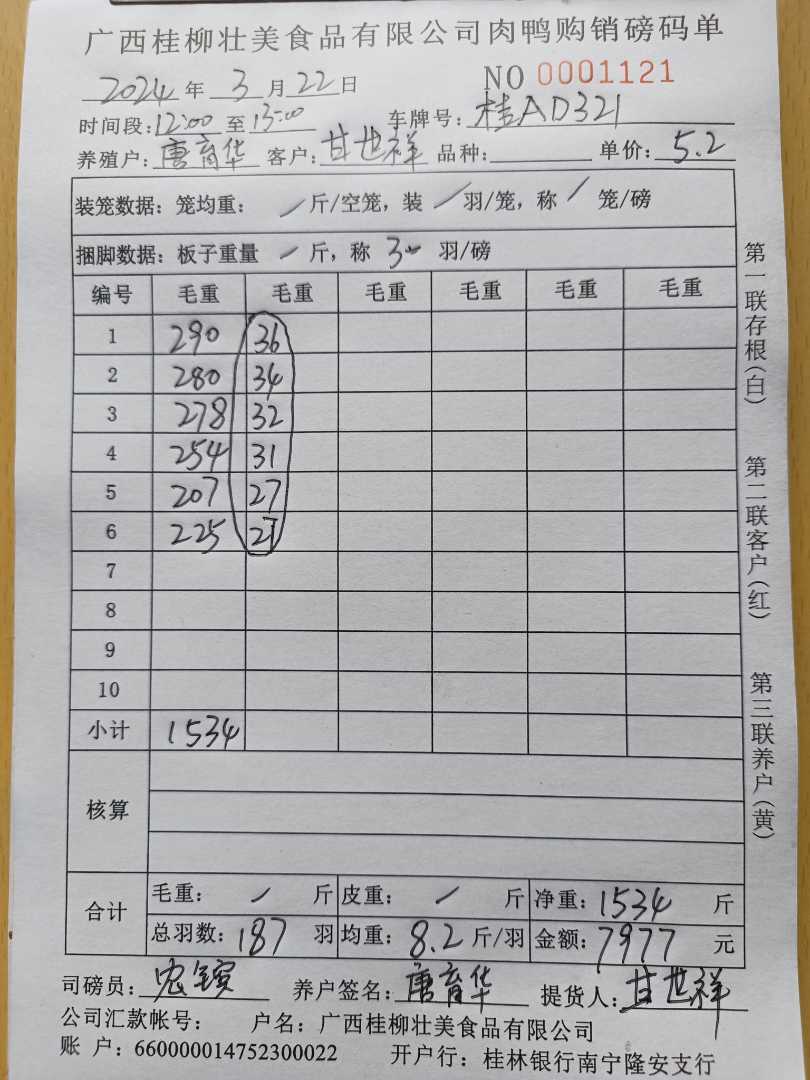 广西桂柳壮美食品有限公司肉鸭购销磅码单
2024 年 3 月 22 日 NO 0001121
时间段: 12:00 至 13:00 车牌号: 桂AD321
养殖户: 唐育华 客户: 甘世祥 品种: 单价: 5.2
装笼数据: 笼均重: / 斤/空笼, 装 / 羽/笼, 称 / 笼/磅
捆脚数据: 板子重量 / 斤, 称 3~ 羽/磅
编号 毛重 毛重 毛重 毛重 毛重 毛重
1 290 36
2 280 34
3 278 32
4 254 31
5 207 27
6 225 27
7
8
9
10
小计 1534
核算
合计 毛重: / 斤 皮重: / 斤 净重: 1534 斤
总羽数: 187 羽 均重: 8.2 斤/羽 金额: 7977 元
司磅员: 养户签名: 唐育华 提货人: 甘世祥
公司汇款帐号: 户名: 广西桂柳壮美食品有限公司
账 户: 660000014752300022 开户行: 桂林银行南宁隆安支行
第一联存根(白)
第二联客户(红)
第三联养户(黄)